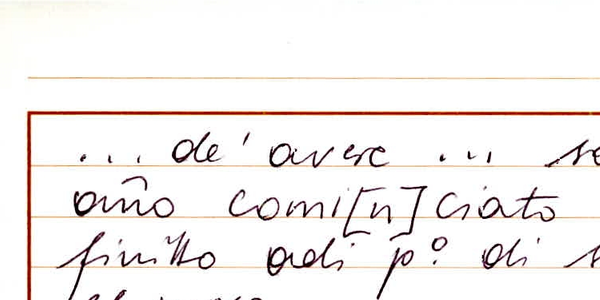 ... de' avere ...
año comi[n]ciato
finitto adi pº di